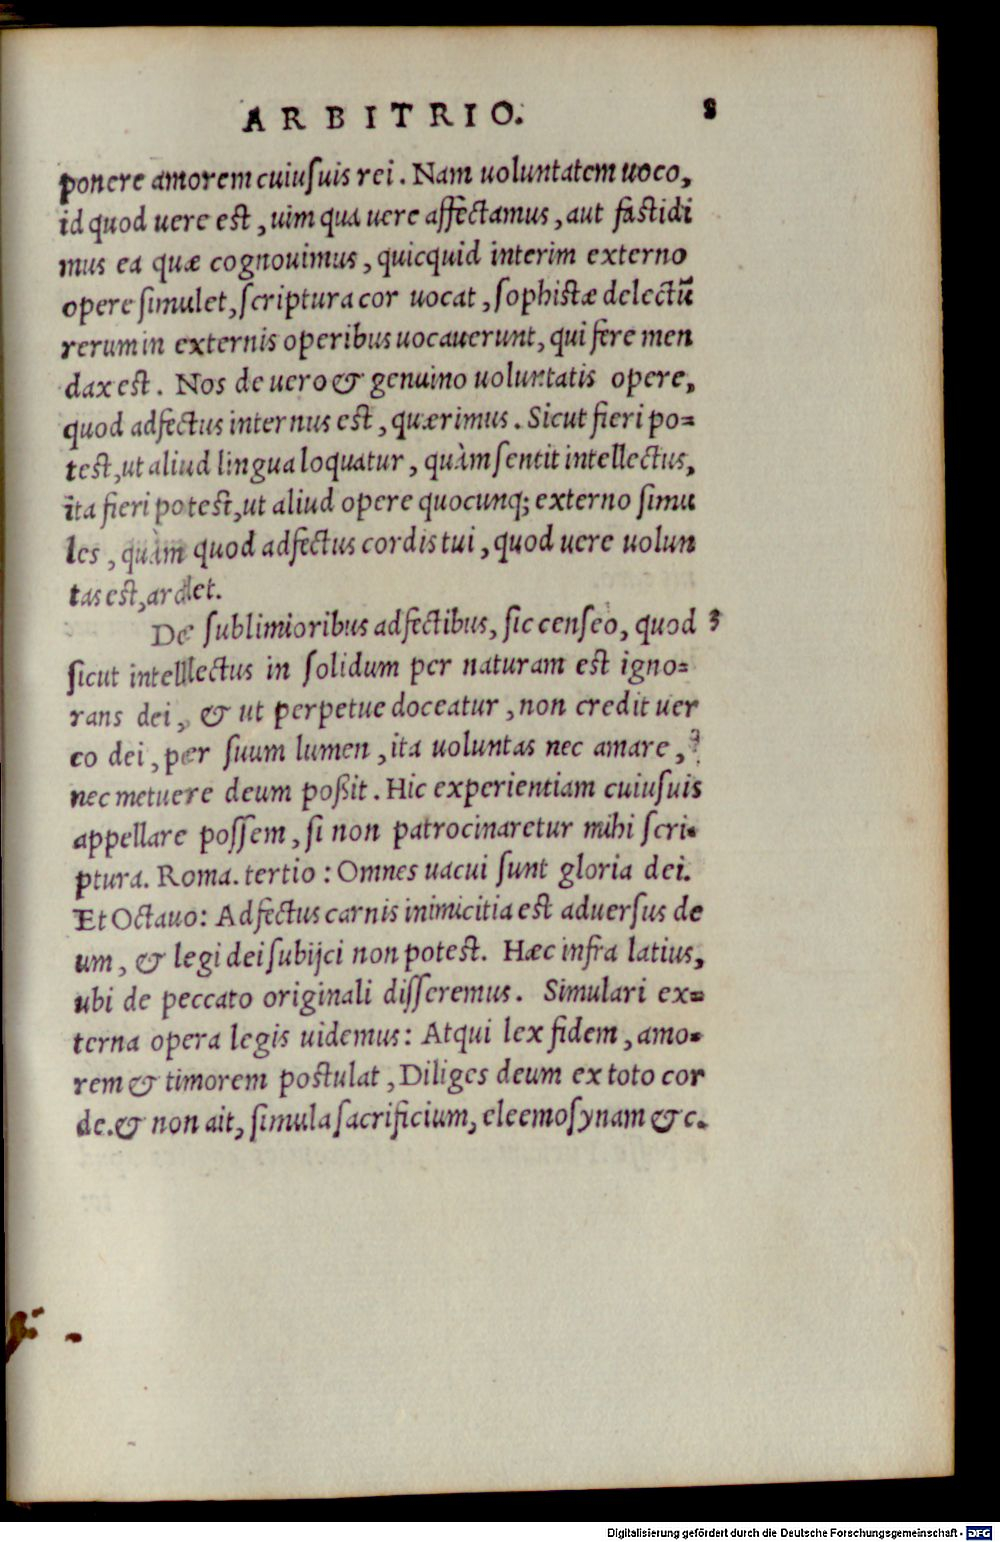 ARBITRIO. 8
ponere amorem cuiuſuis rei. Nam uoluntatem uoco,
id quod uere eſt, uim qua uere affectamus, aut faſtidi
mus ea quæ cognouimus, quicquid interim externo
opere ſimulet, ſcriptura cor uocat, ſophiſtæ delectū
rerum in externis operibus uocauerunt, qui fere men
dax eſt. Nos de uero & genuino uoluntatis opere,
quod adfectus internus eſt, quærimus. Sicut fieri po=
teſt, ut aliud lingua loquatur, quàm ſentit intellectus,
ita fieri poteſt, ut aliud opere quocunq; externo ſimu
les, quàm quod adfectus cordis tui, quod uere uolun
tas eſt, ardet.
De ſublimioribus adfectibus, ſic cenſeo, quod 3
ſicut intelllectus in ſolidum per naturam eſt igno=
rans dei, & ut perpetue doceatur, non credit uer
co dei, per ſuum lumen, ita uoluntas nec amare, ?
nec metuere deum poßit. Hic experientiam cuiuſuis
appellare poſſem, ſi non patrocinaretur mihi ſcri=
ptura. Roma. tertio: Omnes uacui ſunt gloria dei.
Et Octauo: Adfectus carnis inimicitia eſt aduerſus de
um, & legi dei ſubijci non poteſt. Hæc infra latius,
ubi de peccato originali diſſeremus. Simulari ex=
terna opera legis uidemus: Atqui lex fidem, amo=
rem & timorem poſtulat, Diliges deum ex toto cor
de. & non ait, ſimula ſacrificium, eleemoſynam &c.
Digitalisierung gefördert durch die Deutsche Forschungsgemeinschaft - DFG